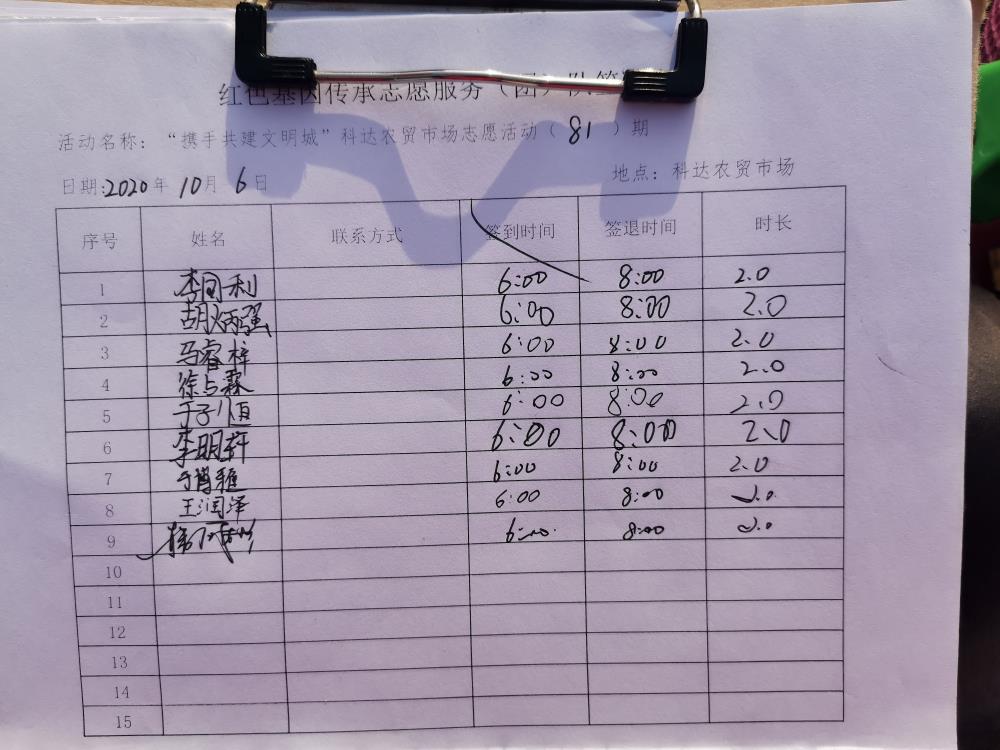 红色基因传承志愿服务（团）队签
活动名称：“携手共建文明城”科达农贸市场志愿活动（ 81 ）期
日期:2020年 10月 6日 地点：科达农贸市场
序号 姓名 联系方式 签到时间 签退时间 时长
1 李国利 6:00 8:00 2.0
2 胡炳强 6:00 8:00 2.0
3 马睿梓 6:00 8:00 2.0
4 徐占霖 6:00 8:00 2.0
5 于子恒 6:00 8:00 2.0
6 李明轩 6:00 8:00 2.0
7 6:00 8:00 2.0
8 王润泽 6:00 8:00 2.0
9 6:00 8:00 2.0
10
11
12
13
14
15